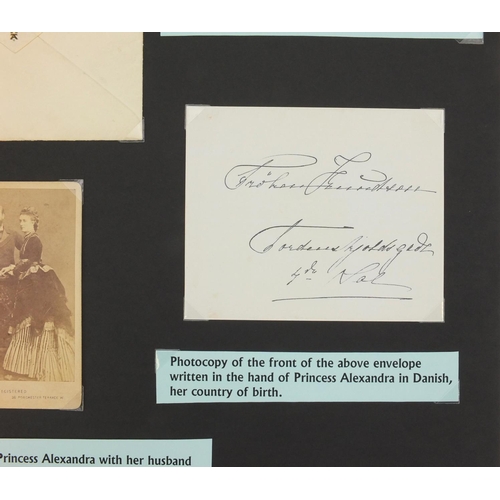 Fröken Knudtson
Tordenskjoldsgade
4de Sal
Photocopy of the front of the above envelope
written in the hand of Princess Alexandra in Danish,
her country of birth.
Princess Alexandra with her husband